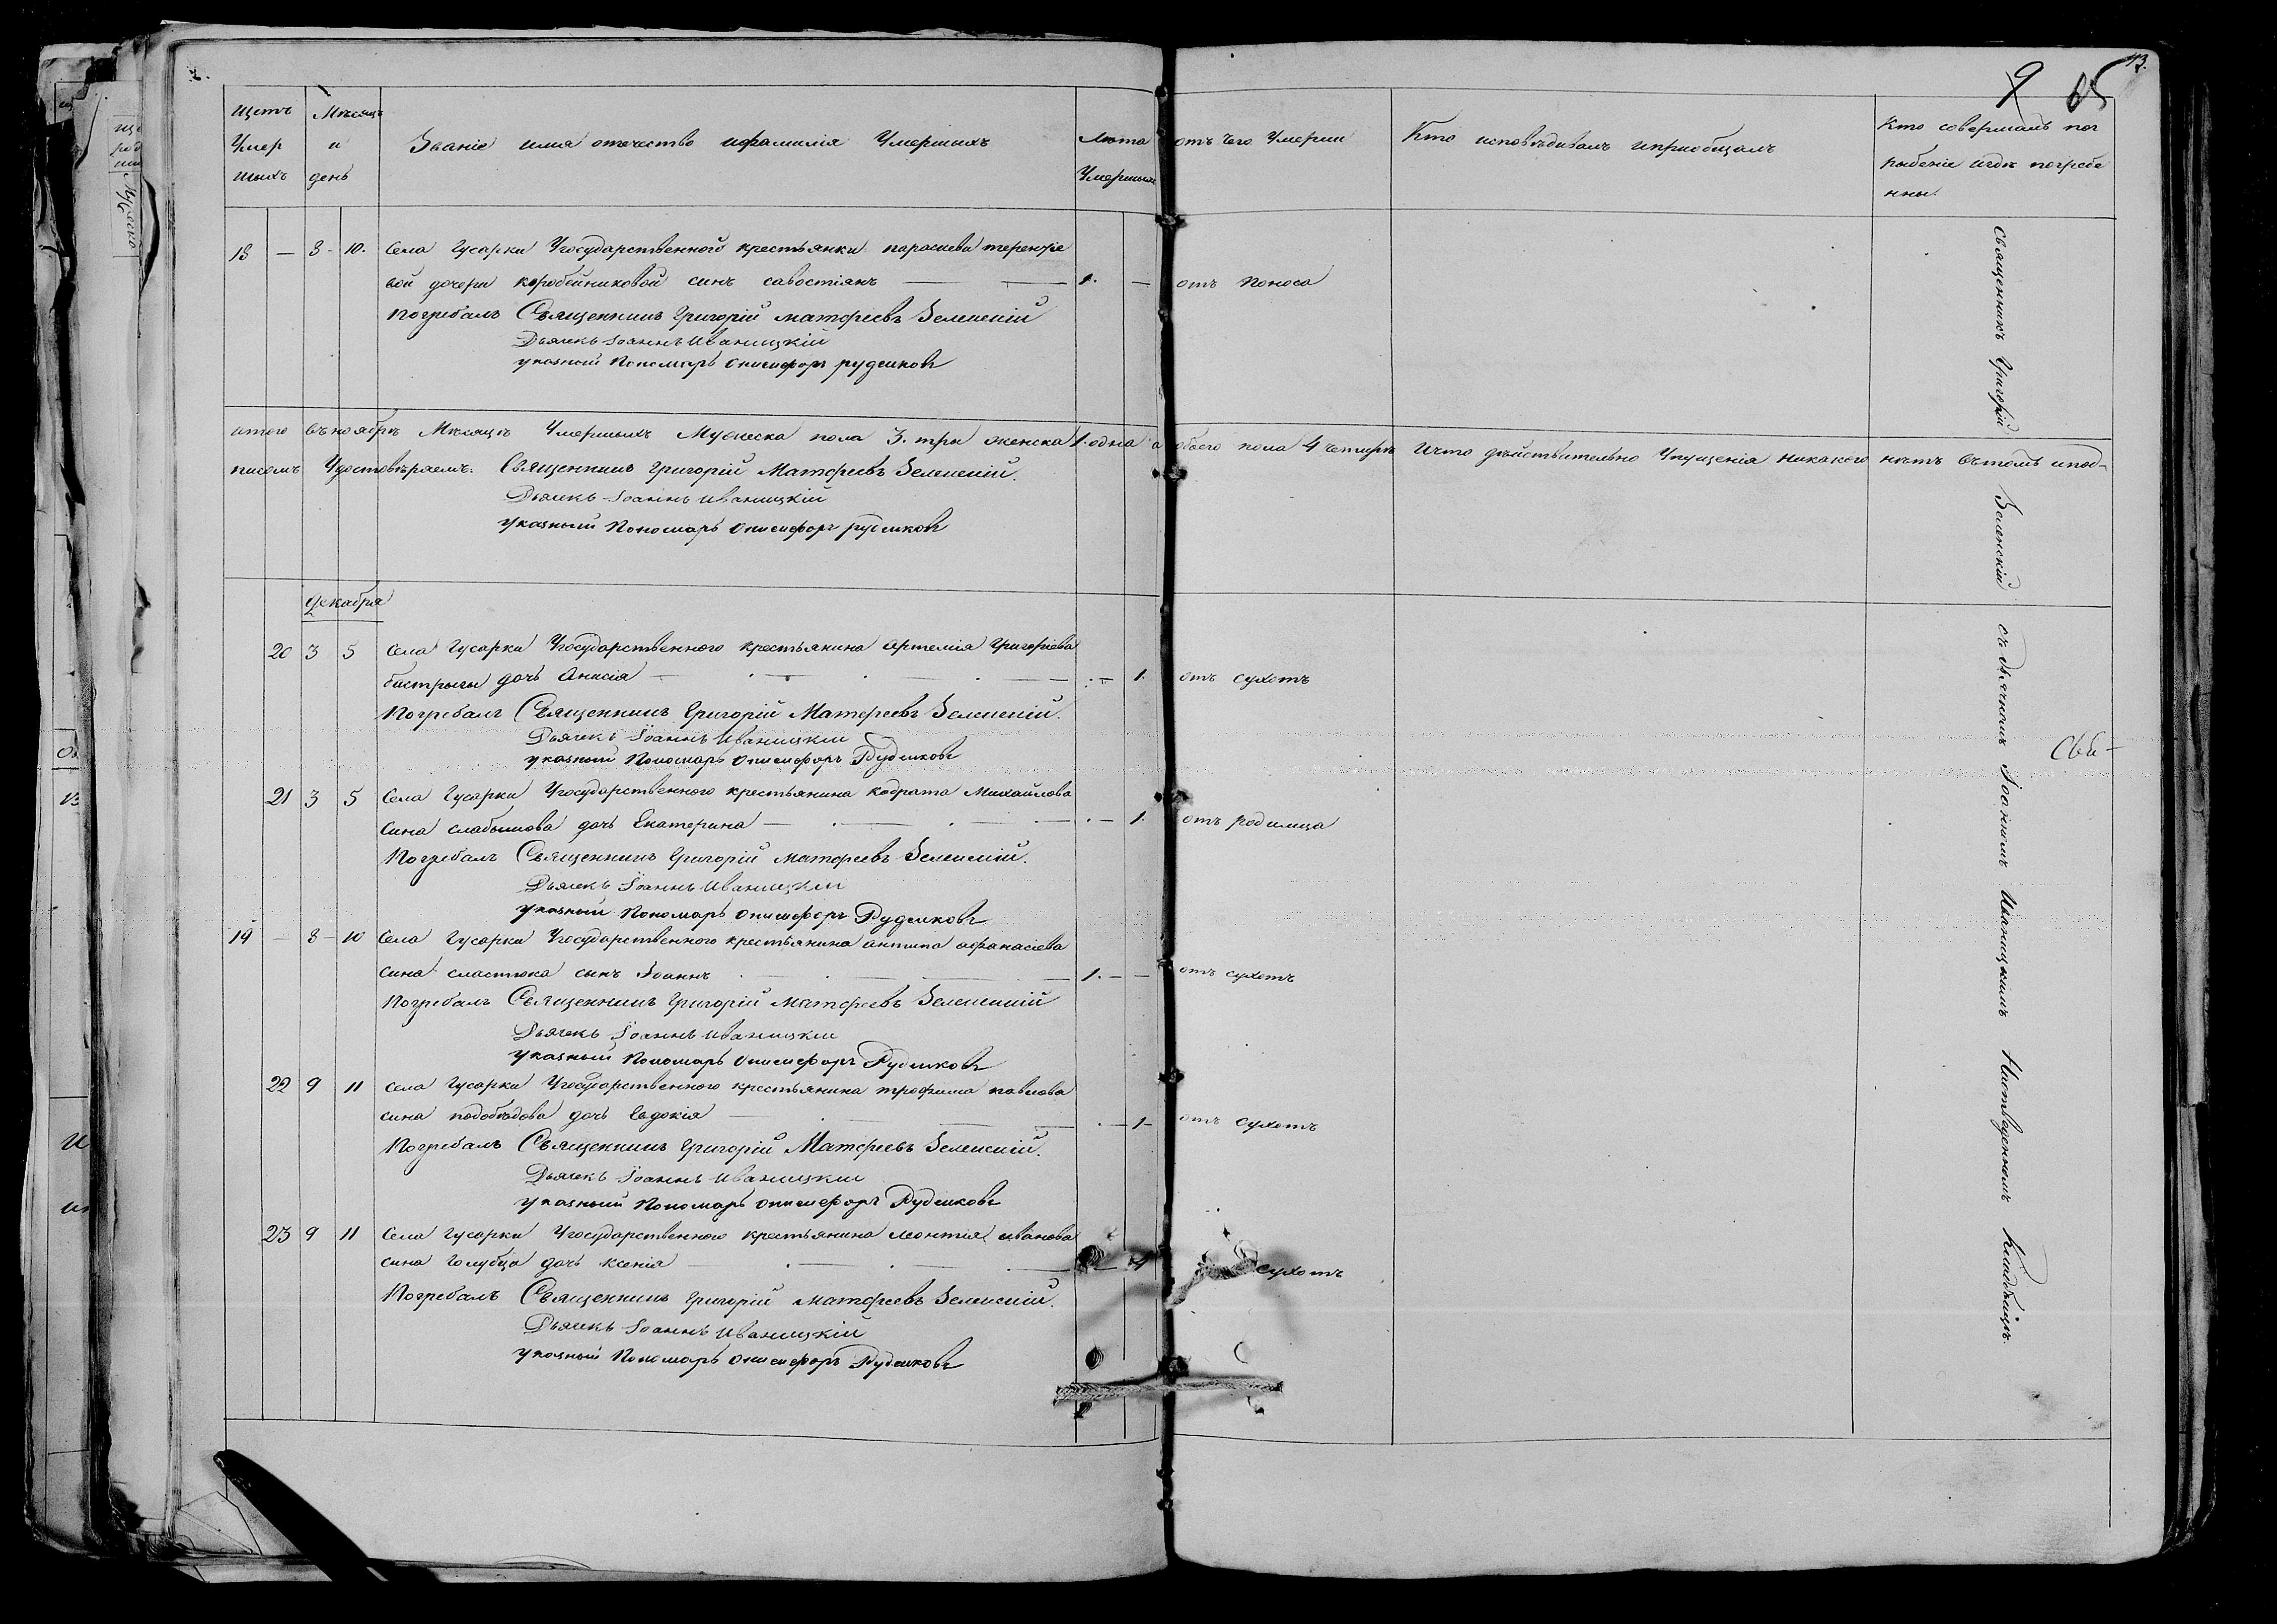 9 65
43.
Щетъ Мѣсяцъ
Умер и Званіе имя отечество ифамилія Умершихъ Лѣта отъ чего Умерли Кто исповѣдивалъ иприобщалъ Кто совершалъ пог
шыхъ день Умершыхъ рыбеніе игдѣ погребе
нны.
18 — 8 - 10. Села Гусарки Угосударственного крестьянки параскеви терентіе
вой дочери коробейниковой синъ савостіянъ — 1. — отъ поноса
Погребалъ Священникъ Григорій Матфеевъ Зеленскій
Дьячекъ Іоаннъ Иваницкій
указный Пономарь Онисифоръ Рудиковъ
итого въноябрѣ Мѣсяцѣ Умершыхъ Мужеска пола 3. три женска 1. одна а обоего пола 4 четыре Ичто дѣйствительно Упущенія никакого нѣтъ вътомъ ипод-
писомъ Удостовѣряемъ. Священникъ Григорій Матфеевъ Зеленскій.
Дьячекъ Іоаннъ Иваницкій
указный Пономарь Онисифоръ Рудиковъ
декабря
20 3 5 Села Гусарки Угосударственного крестьянина Артемія Григоріева
бистрыги дочь Анисія — 1. отъ сухотъ
Погребалъ Священникъ Григорій Матфеевъ Зеленскій.
Дьячекъ Іоаннъ Иваницкій
указный Пономарь Онисифоръ Рудиковъ
21 3 5 Села Гусарки Угосударственного крестьянина кодрата Михайлова
сина слабышова дочь Екатерина — 1. отъ родимца
Погребалъ Священникъ Григорій Матфеевъ Зеленскій.
Дьячекъ Іоаннъ Иваницкій
указный Пономарь Онисифоръ Рудиковъ
19 — 8 - 10 Села Гусарки Угосударственного крестьянина антипа афанасіева
сина сластюка сынъ Іоаннъ — 1. — отъ сухотъ
Погребалъ Священникъ Григорій Матфеевъ Зеленскій
Дьячекъ Іоаннъ Иваницкій
указный Пономарь Онисифоръ Рудиковъ
22 9 11 села Гусарки Угосударственного крестьянина трофима павлова
сина подобѣдова дочь Евдокія — 1 отъ сухотъ
Погребалъ Священникъ Григорій Матфеевъ Зеленскій.
Дьячекъ Іоаннъ Иваницкій
указный Пономарь Онисифоръ Рудиковъ
23 9 11 Села Гусарки Угосударственного крестьянина леонтія иванова
сина Голубца дочь ксенія — сухотъ
Погребалъ Священникъ Григорій Матфеевъ Зеленскій.
Дьячекъ Іоаннъ Иваницкій
указный Пономарь Онисифоръ Рудиковъ
Священникъ Григорій Зеленскій съ дьячкомъ Іоанномъ Иваницкимъ Кладбищѣ.